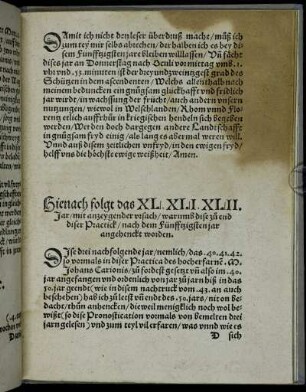 DAmit ich nicht denleser überdruß mache/ müß ich
zum tey mir selbs abrechen/ derhalben ich es bey de
sem Fünffzigsten jare bleiben will lassen/ Vñ facht
dises jar an Donnerstag nach Oculi vor mittag vms. 1.
vhr vnd .53. minuten ist der drey vnd zweintzgest grad des
Schützen in dem ascendenten/ Welchs allenthalb nach
meinem beduncken ein gnügsam glückhafft vnd fridlich
jar würdt/ in wachssung der frucht/ auch andern vnsern
nutzungen/ wiewol in Welschlanden/ Rom vnnd Flo-
rentz etlich auffrhür in kriegischen hendeln sich begeben
werden/ Werden doch dargegen andere Landschafft
in gnügsam fryd einig/ als lang es abermal weren will.
Vnnd auß disem zeitlichen vnfryd/ in den ewigen fryd/
helff vns die höchste ewige weißheit/ Amen.
Hienach folgt das XL. XLI. XLII.
Jar/ mit anzeygender vrsach/ warumb dise zu end
diser Practick/ nach dem Fünffzigsten jar
angehenckt worden.
DIse drei nachfolgende jar/ nemlich/ das .40. 41. 42.
so vormals in diser Practica des hocherfarnē. M.
Johans Carionis/ zu fordest gesetzt vñ also im .40.
jar angefangen vnd ordenlich von jar zu jarn biß in das
50. jar geendt/ (wie in disem nachtruck vom .43. an auch
beschehen) hab ich zu letst vñ end des .50. jars/ nit on bedacht/
thün anhencken/ die weil menigklich noch wol be-
wißt/ so dise Pronostication vormals von bemelten drei
jarn gelesen/ vnd zum teyl vil erfaren/ was vnnd wie es
D sich